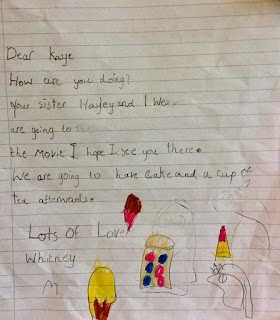 Dear Kaye
How are you doing?
Your sister Hayley and I We
are going to the
the Movie I hope I see you there.
We are going to have Cake and a cup of
tea afterwards.
Lots Of Love
Whitney
M